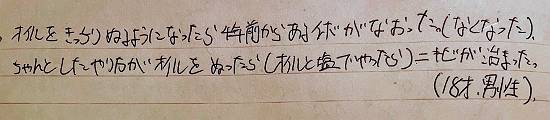 。オイルをきっちりぬるようになったら4年前からあるイボがなおった。(なくなった)。
ちゃんとしたやり方でオイルをぬったら(オイルと塩でやったら)ニキビが治まった。
(18才.男性)。